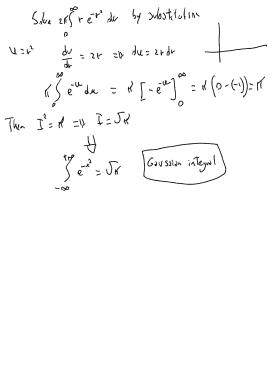 Solve 2π∫₀^∞ r e^{-r²} dr by substitution
u = r² du/dr = 2r ⇒ du = 2r dr
π ∫₀^∞ e^{-u} du = π [-e^{-u}]₀^∞ = π (0 - (-1)) = π
Then I² = π ⇒ I = √π
⇓
∫_{-∞}^{+∞} e^{-x²} = √π Gaussian integral